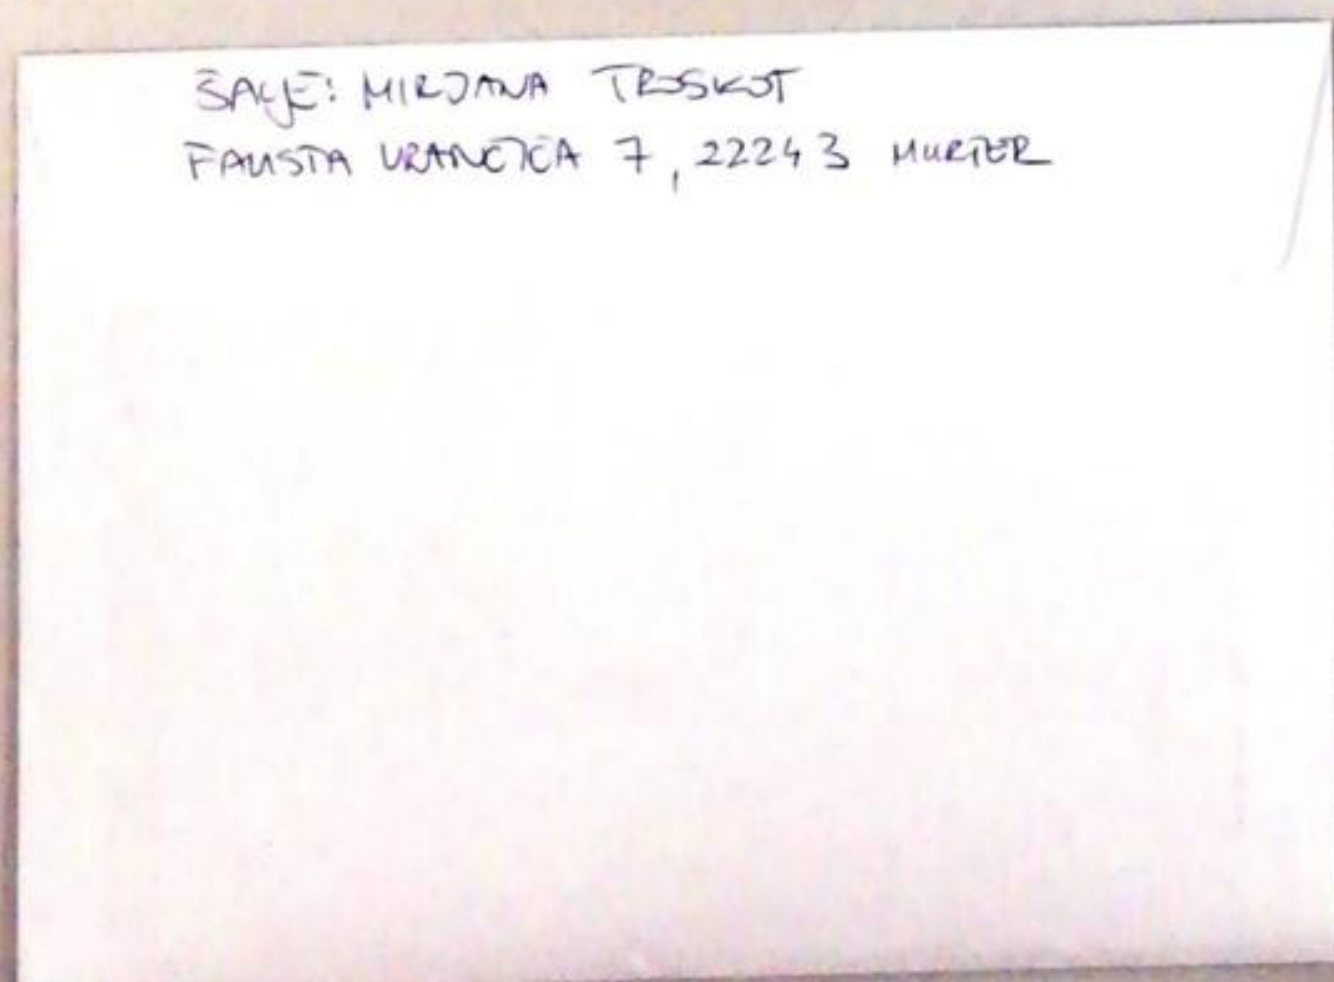 ŠALJE: MIRJANA TROSKOT
FAUSTA VRANČIĆA 7, 22243 MURTER